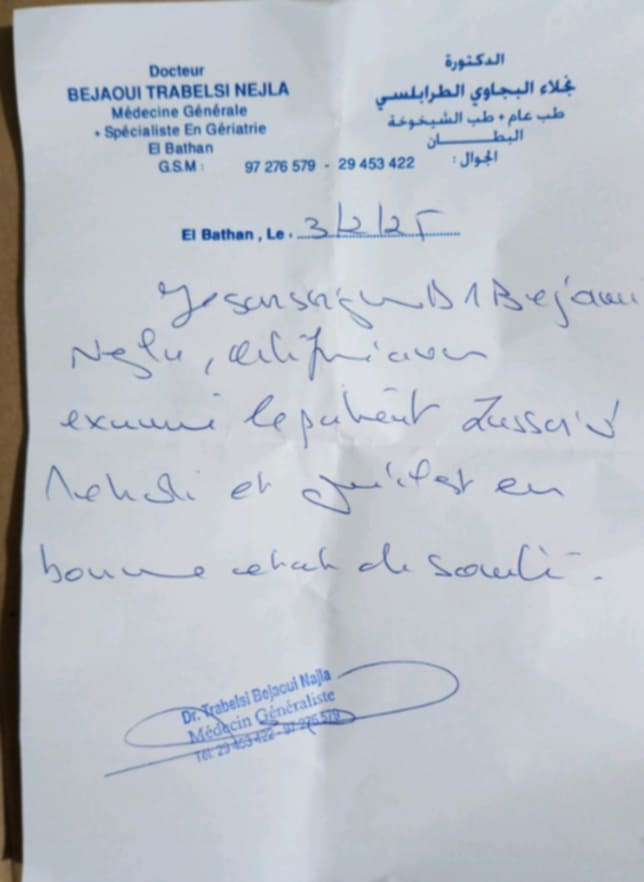 Docteur
BEJAOUI TRABELSI NEJLA
Médecine Générale
+ Spécialiste En Gériatrie
El Bathan
G.S.M : 97 276 579 - 29 453 422
الدكتورة
نجلاء البجاوي الطرابلسي
طب عام + طب الشيخوخة
البطــــــان
الجوال :
El Bathan , Le . 3/2/25
Je soussigné Dr Bejaoui
Nejla, certifie avoir
examiné le patient
Mehdi et qu'il est en
bonne état de santé.
Dr. Trabelsi Bejaoui Najla
Médecin Généraliste
Tél: 29 453 422 - 97 276 579